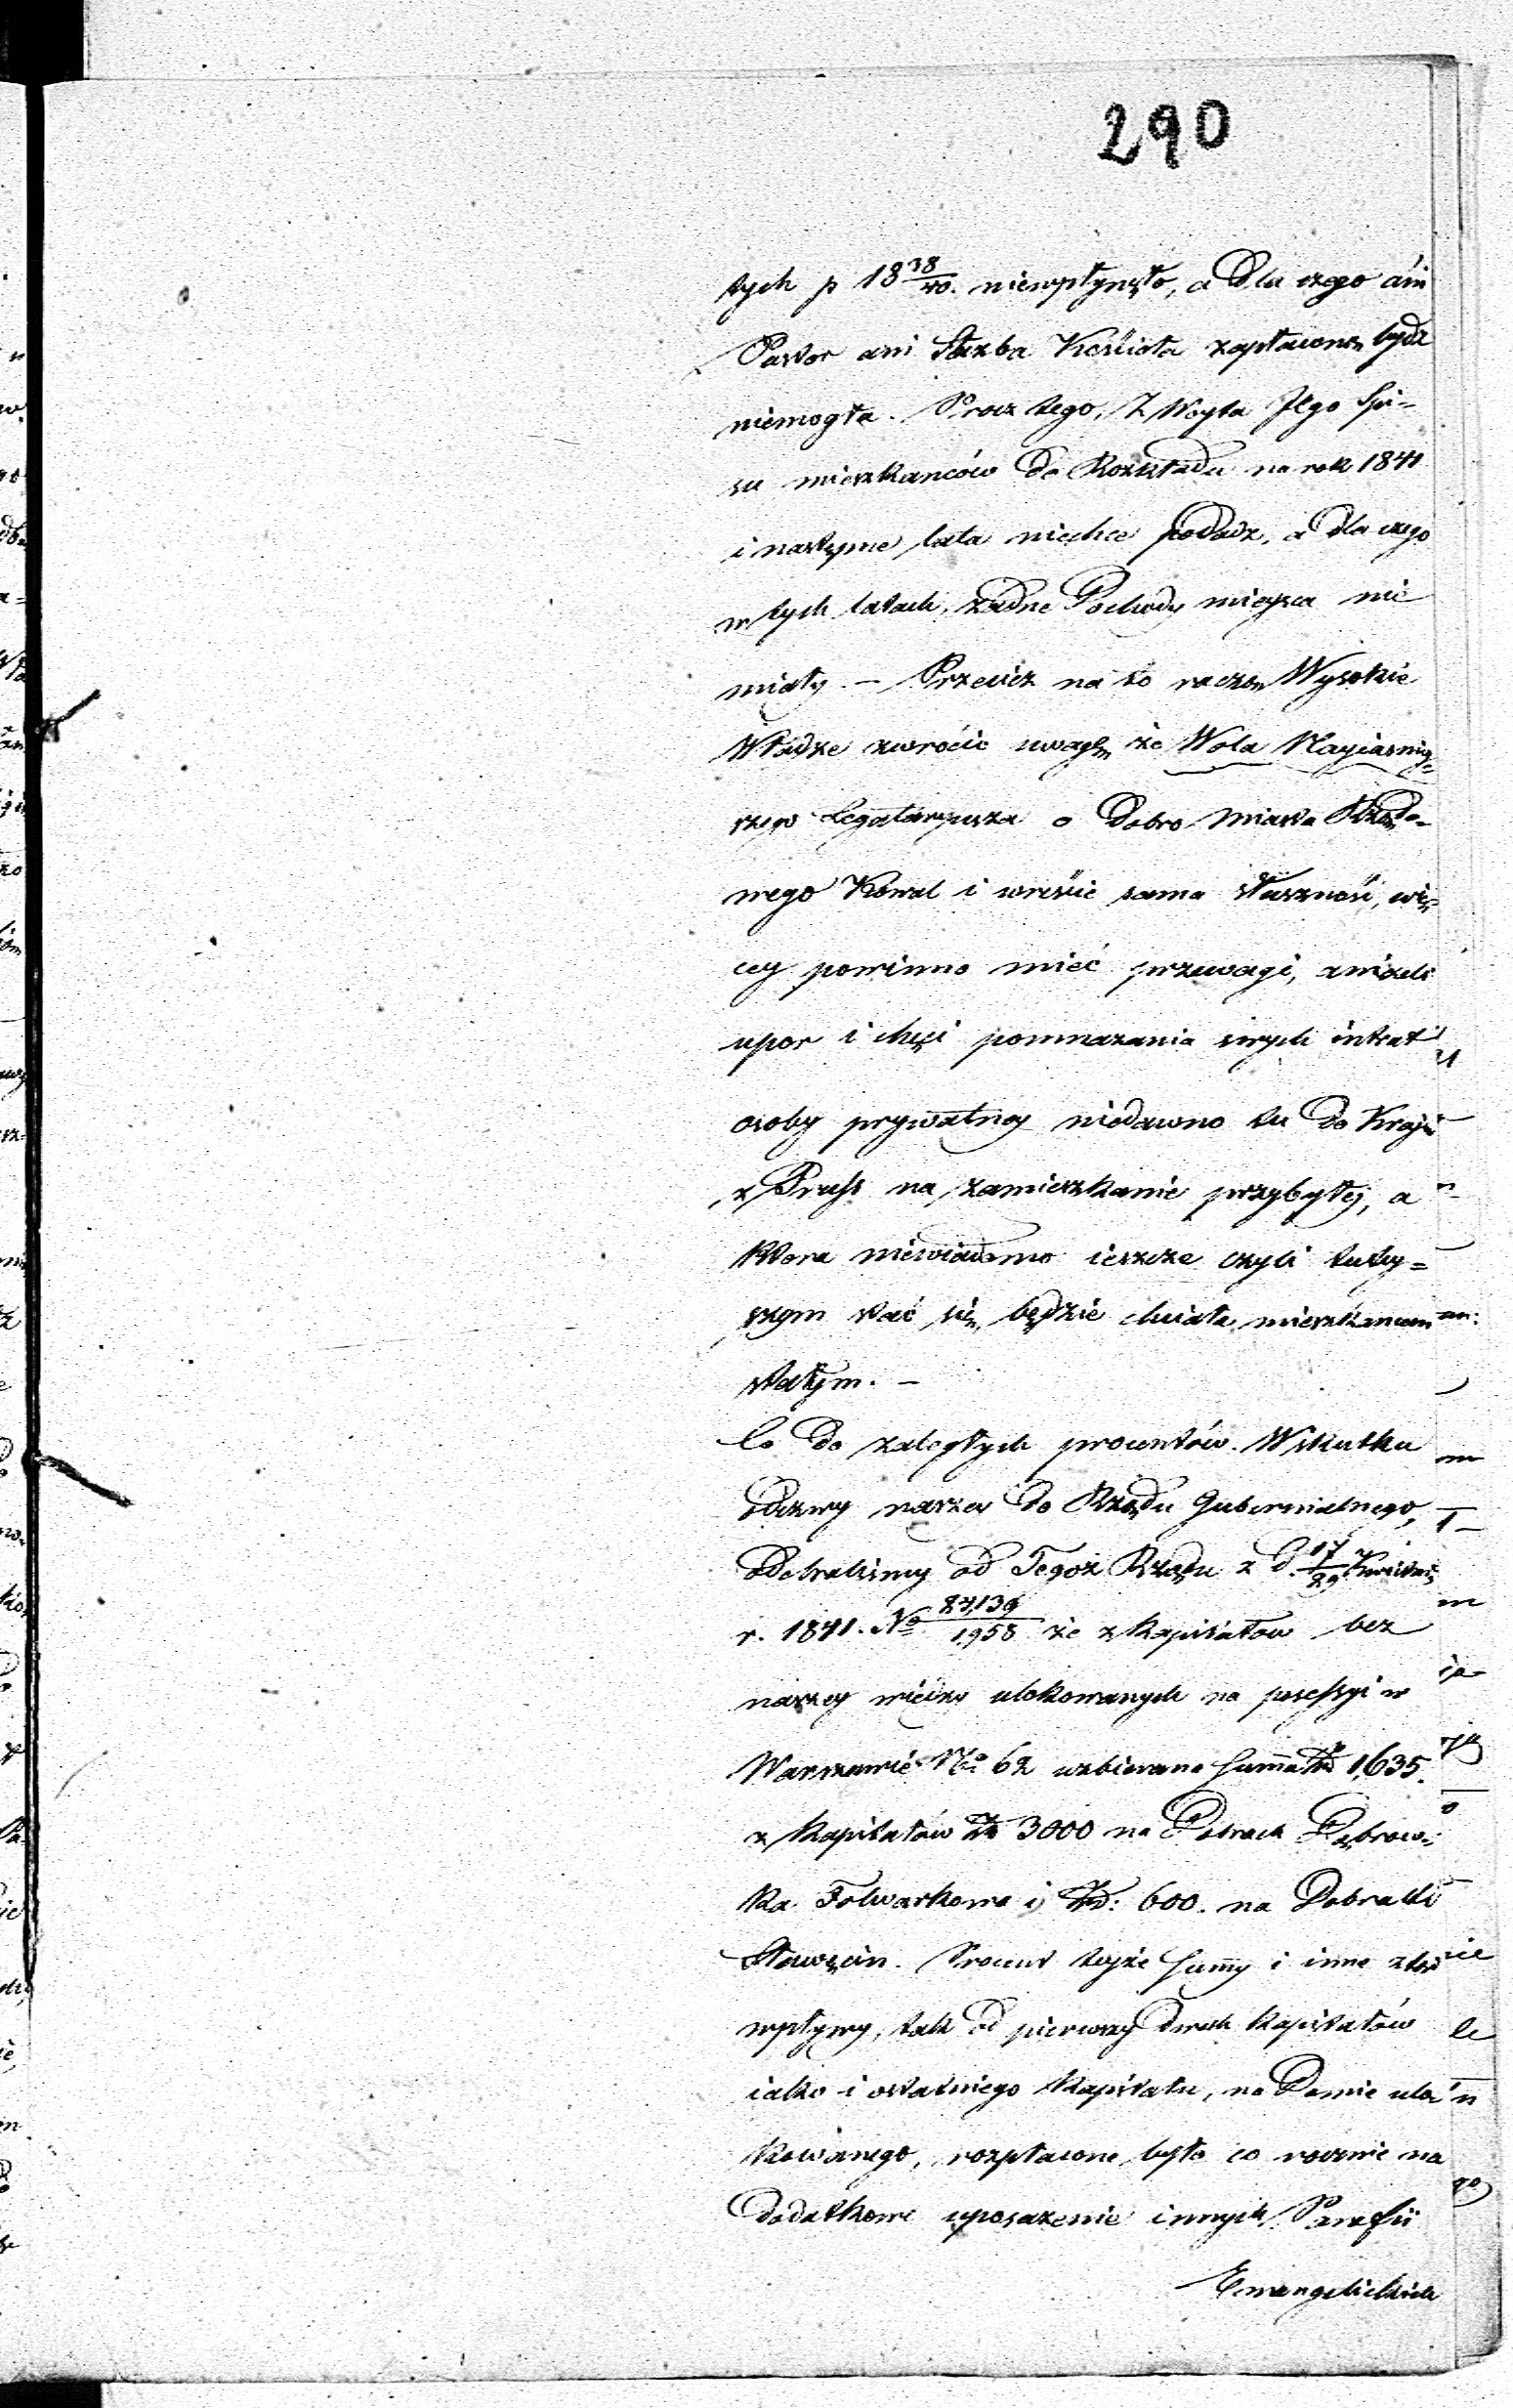 290
tych p 18 38/40. niewpłynęło, a Dla czego ani
Pastor ani Służba Kościoła zapłaconą bydź
niemogła. Procz tego, Z Woyta Jlgo Spi-
su mieszkanców do Rozkładu na rok 1841
i nastepne lata niechce podadz, a dla czego
w tych latach, żadne Dochody mieysca nie
miały. – Przecież na to raczą Wysokie
Władze zwrócic uwagę że Wola Nayiasniey=
szego Legataryusza o Dobro Miasta Rządo-
wego Kowal i wreście sama słuszność, wię-
cey powinno mieć przewagi, anizeli
upor i chęci pomnazania swych intrat
osoby prywatney niedawno tu do Kraju
z Pruss na zamieszkanie przybyłej, a
ktora niewiadomo ieszcze czyli tutey=
szym stać się będzie chciała mieszkancem
stałym. –
Co do zaległych procentów. Wskutku
odezwy naszey do Rządu Gubernialnego,
Odebralismy od Tegoz Rządu z d. 17/29 Kwietnia
r. 1841. No 27,139/1958 że z kapitałow bez
naszey wiedzy ulokowanych na possessyi w
Warszawie No 62 uzbierana Summa Zł 1,635.
z Kapitałów Zł 3000 na Dobrach Dąbrow-
ka Folwarkowa i Zł: 600. na Dobrach
Sławęcin. Procent tejże Summy i inne ztąd
wpływy, tak od pierwszy dwuch Kapitałów
iako i ostatniego Kapitału, na Domie ulo-
kowanego, rozpłacone było co rocznie na
Dodatkowe uposazenie innych Parafii
Ewangelickich